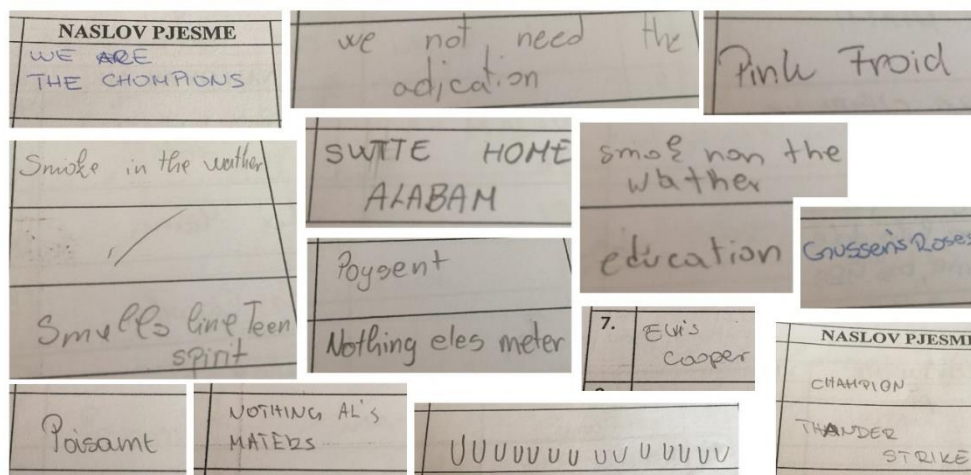 NASLOV PJESME
WE ARE
THE CHOMPIONS
we not need the
adication
Pink Froid
Smoke in the wather
Smells line Teen
spirit
SWTTE HOME
ALABAM
Poysent
Nothing eles meter
smok non the
wather
education
Gnussen's Roses
7.
Elvis
Cooper
NASLOV PJESME
CHAMPION
THANDER
STRIKE
Poisamt
NOTHING AL's
MATERS
UUUUUUU UU U UUUU